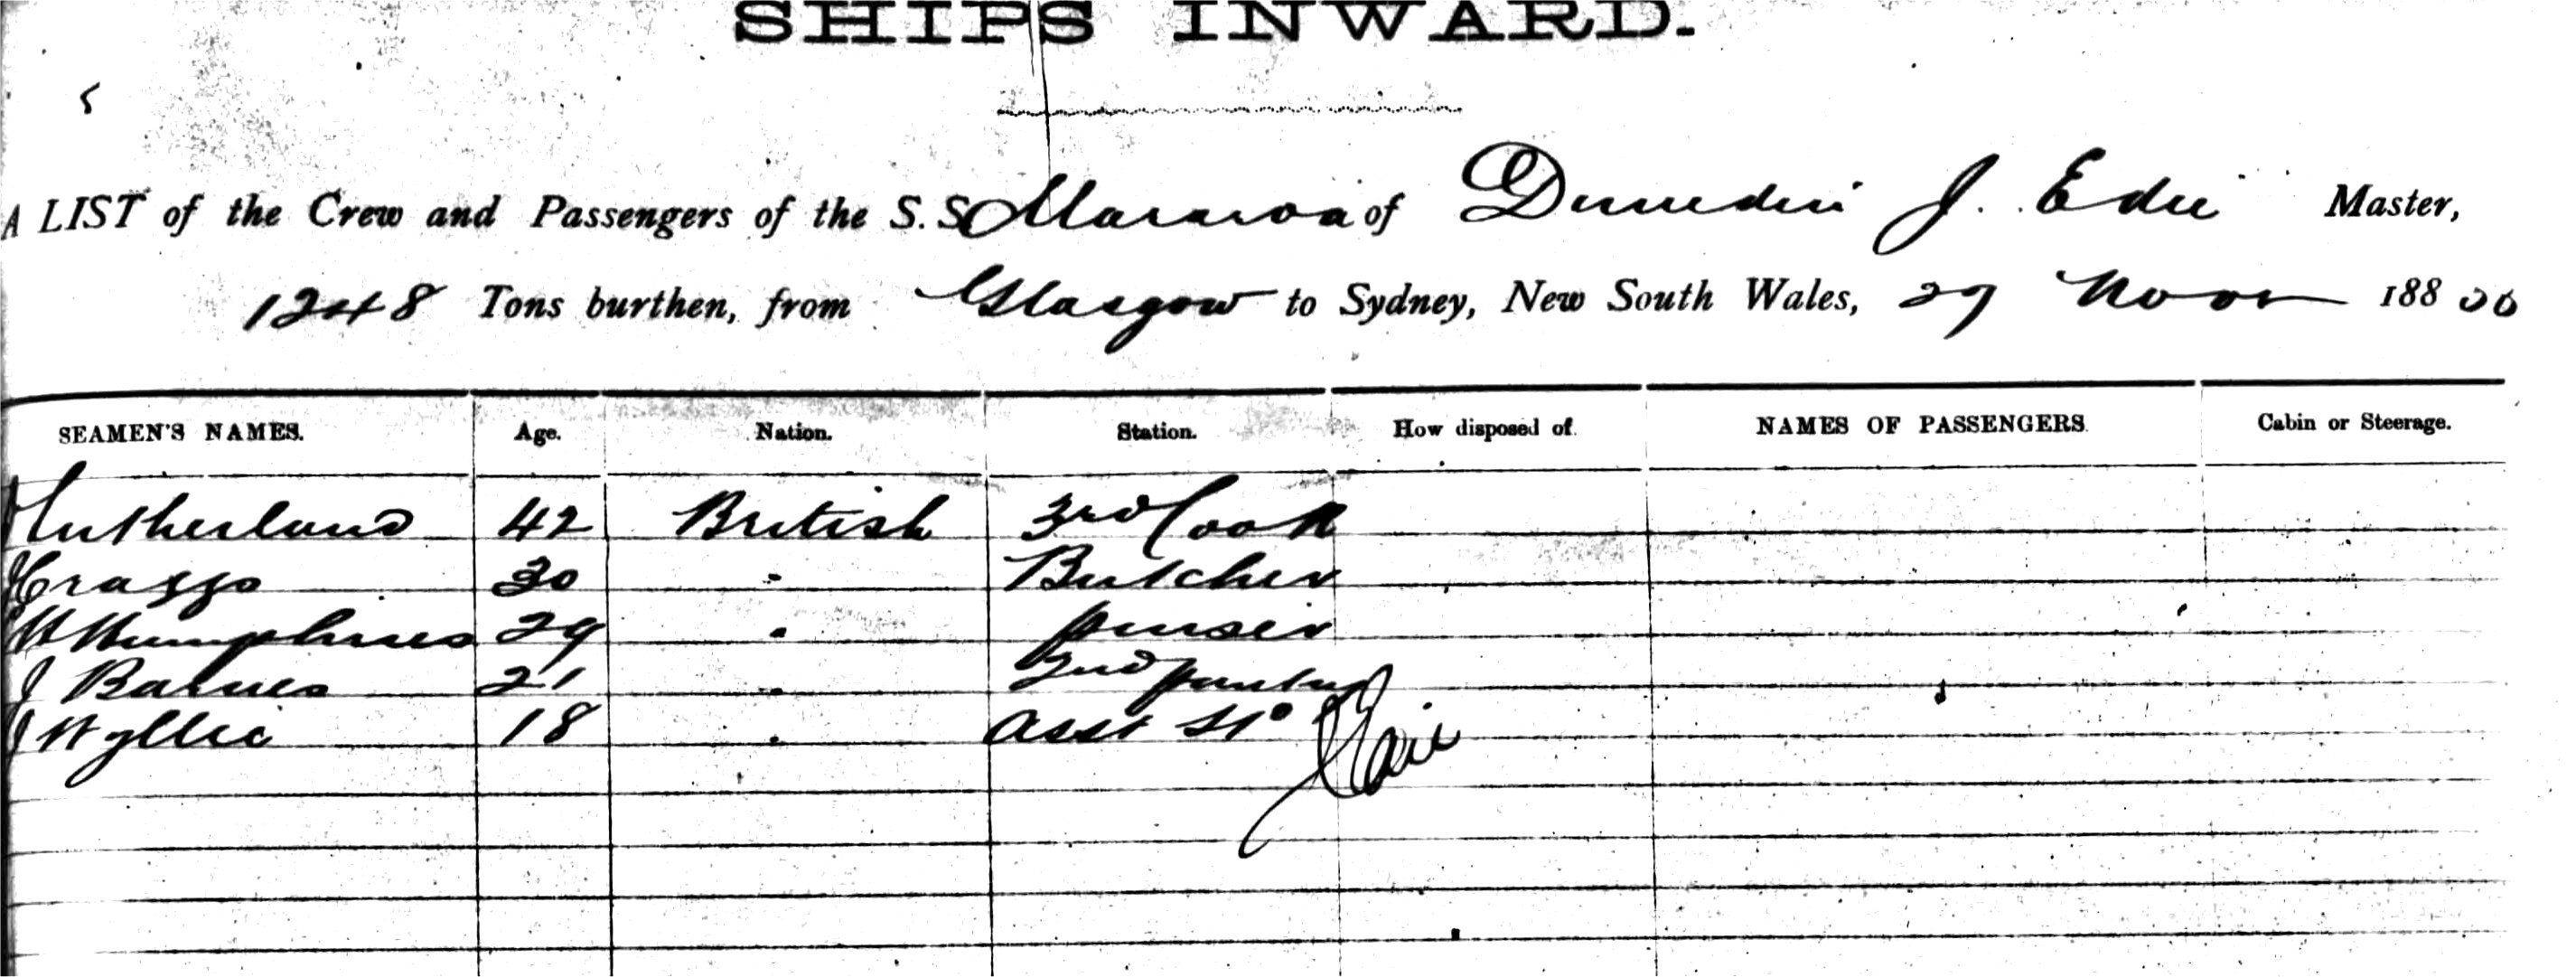 SHIPS INWARD.
A LIST of the Crew and Passengers of the S.S. Mararoa of Dunedin J. Edie Master,
1248 Tons burthen, from Glasgow to Sydney, New South Wales, 29 Novr 188
SEAMEN'S NAMES. Age. Nation. Station. How disposed of. NAMES OF PASSENGERS. Cabin or Steerage.
Sutherland 42 British 3rd Cook
Craggs 30 " Butcher
W Humphries 29 " purser
J Barnes 21 " 2nd pantry
J Wyllie 18 " Asst St